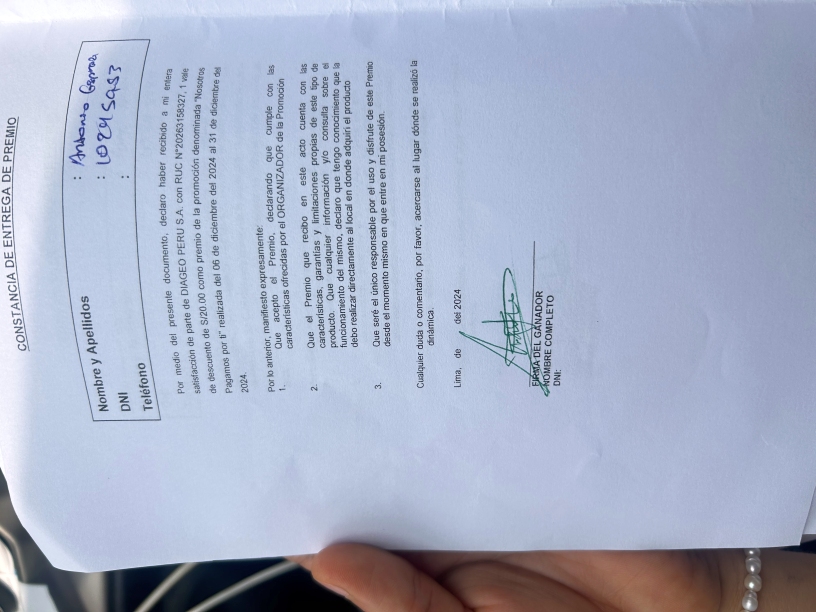 CONSTANCIA DE ENTREGA DE PREMIO
Nombre y Apellidos : Antonio
DNI :
Teléfono :
Por medio del presente documento, declaro haber recibido a mi entera
satisfacción de parte de DIAGEO PERU S.A. con RUC N°20263158327, 1 vale
de descuento de S/20.00 como premio de la promoción denominada "Nosotros
Pagamos por ti" realizada del 06 de diciembre del 2024 al 31 de diciembre del
2024.
Por lo anterior, manifiesto expresamente:
1. Que acepto el Premio, declarando que cumple con las
características ofrecidas por el ORGANIZADOR de la Promoción
2. Que el Premio que recibo en este acto cuenta con las
características, garantías y limitaciones propias de este tipo de
producto. Que cualquier información y/o consulta sobre el
funcionamiento del mismo, declaro que tengo conocimiento que la
debo realizar directamente al local en donde adquirí el producto
3. Que seré el único responsable por el uso y disfrute de este Premio
desde el momento mismo en que entre en mi posesión.
Cualquier duda o comentario, por favor, acercarse al lugar dónde se realizó la
dinámica
Lima, de del 2024
FIRMA DEL GANADOR
NOMBRE COMPLETO
DNI: